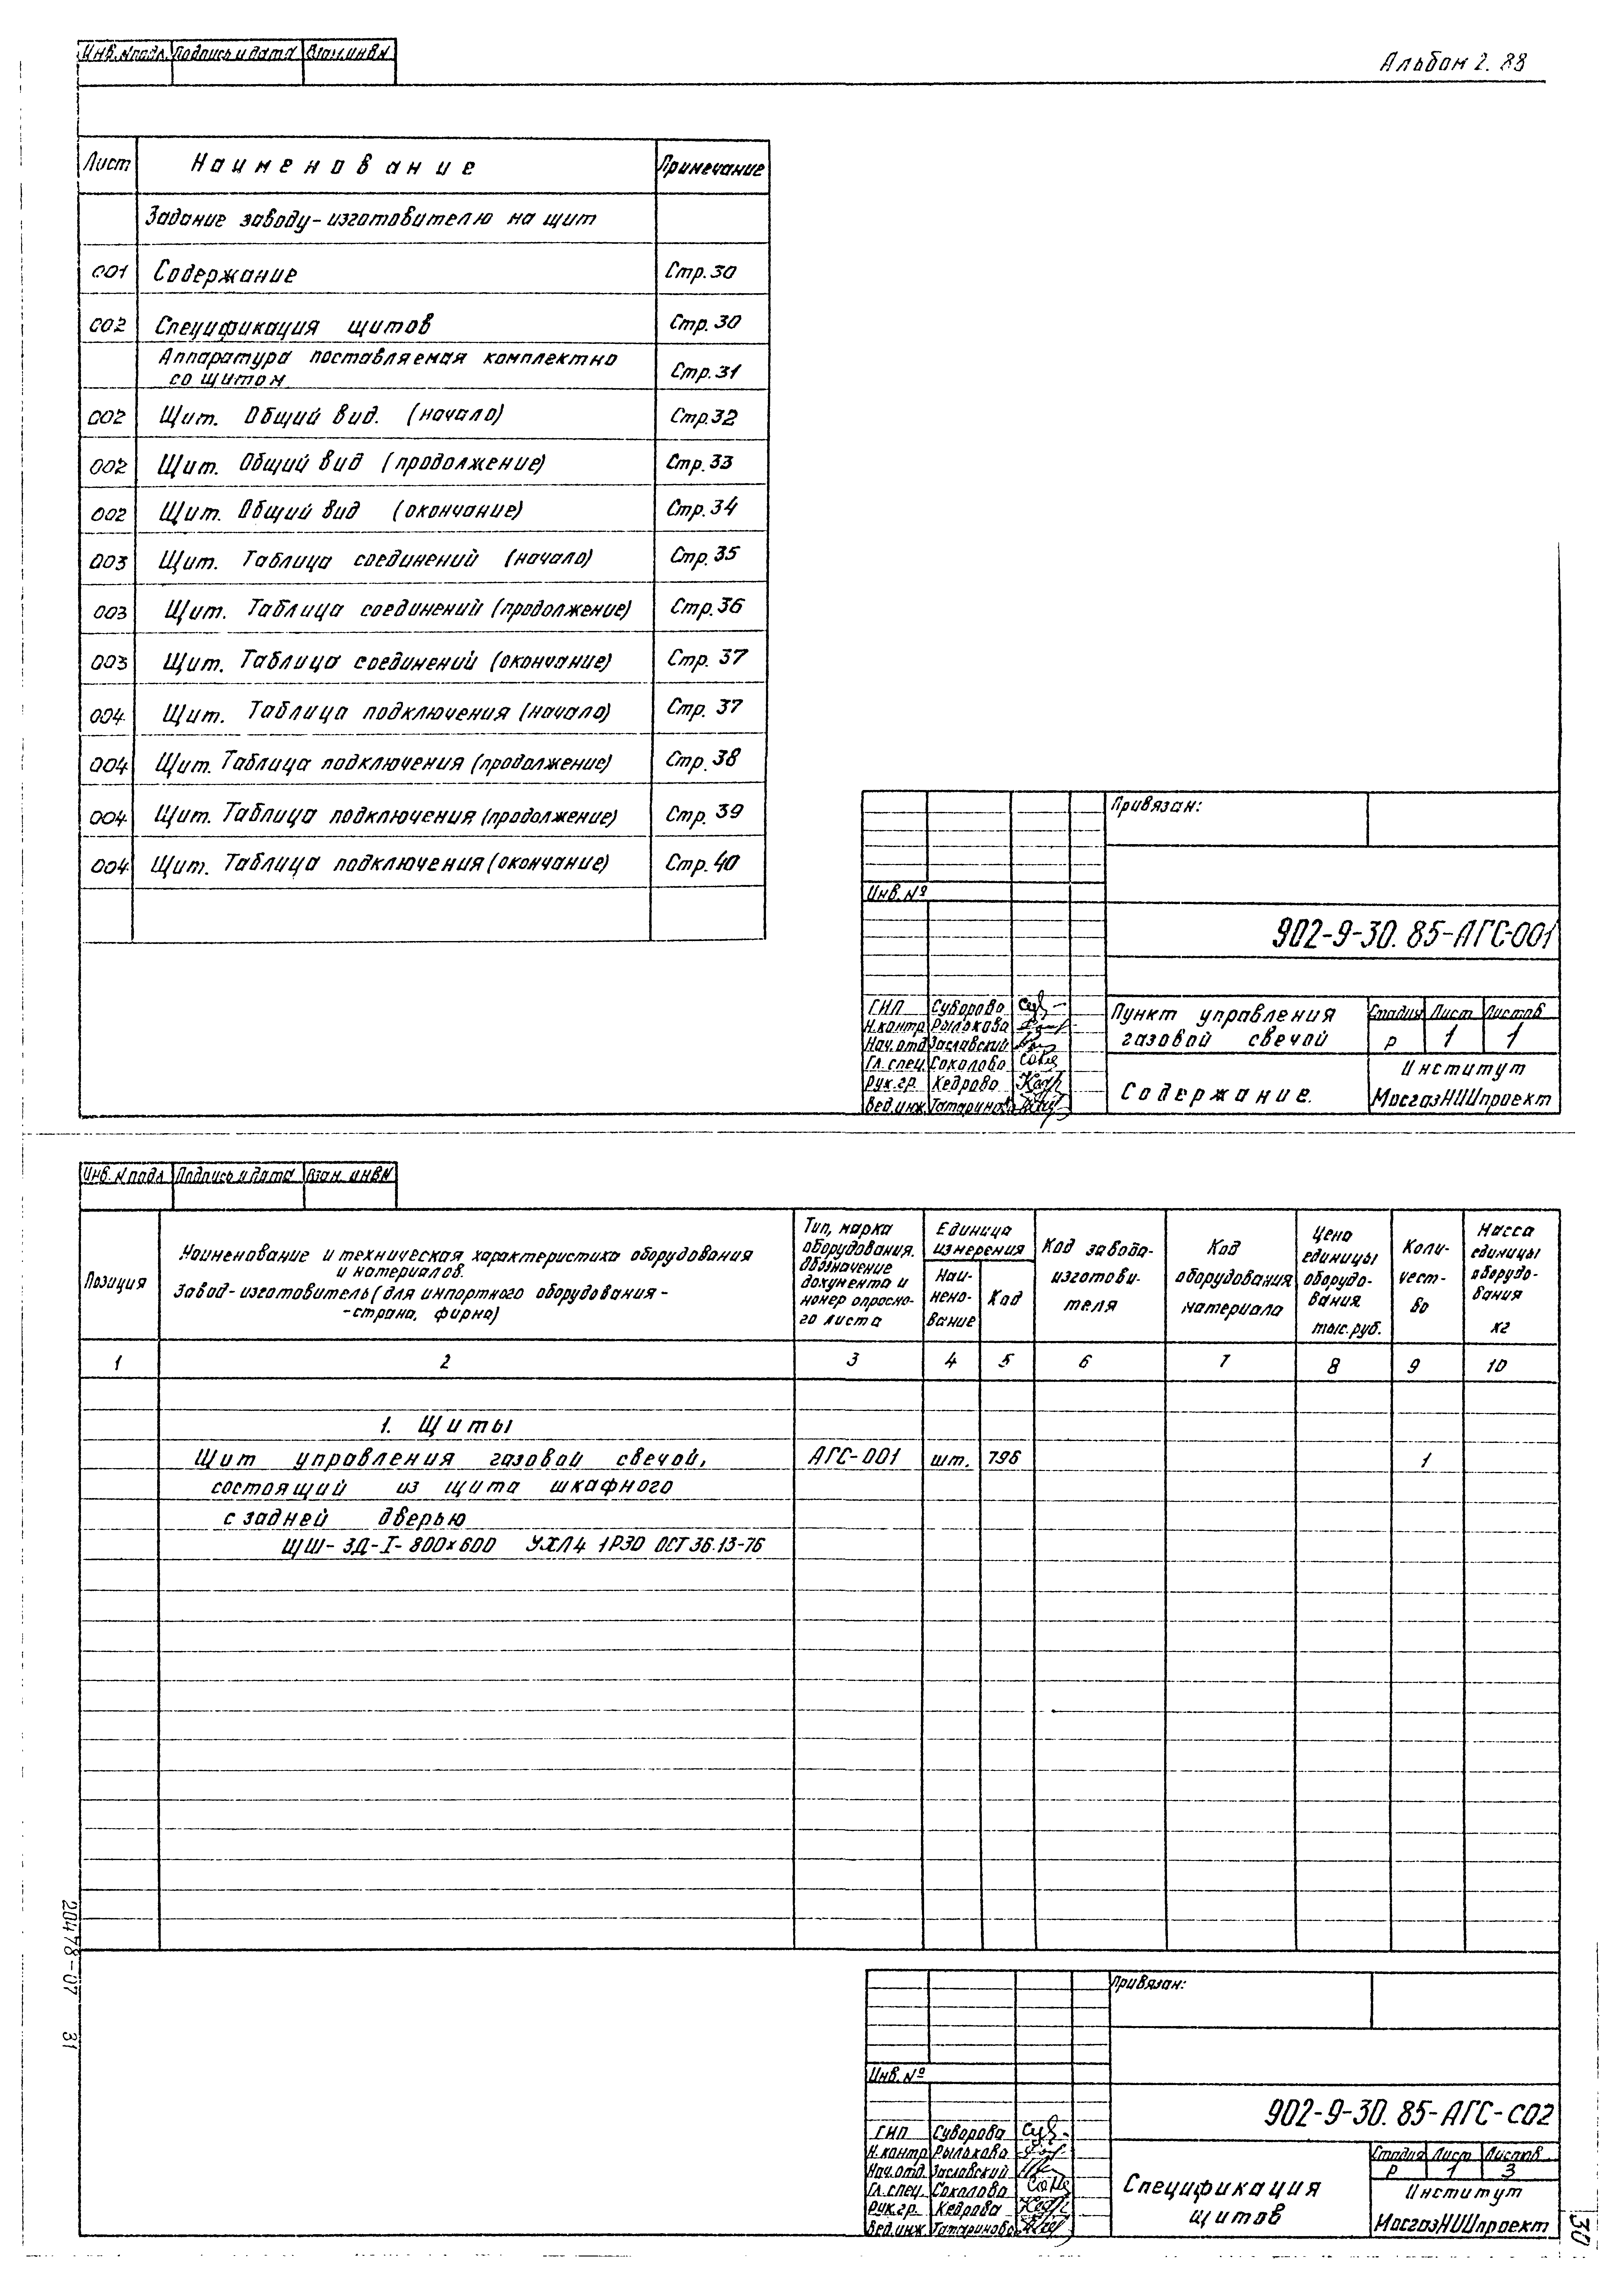 Инв. N подл. Подпись и дата Взам. инв N
Альбом 2. 88
Лист Наименование Примечание
Задание заводу-изготовителю на щит
001 Содержание Стр. 30
002 Спецификация щитов Стр. 30
Аппаратура поставляемая комплектно
со щитом Стр. 31
002 Щит. Общий вид. (начало) Стр. 32
002 Щит. Общий вид (продолжение) Стр. 33
002 Щит. Общий вид (окончание) Стр. 34
003 Щит. Таблица соединений (начало) Стр. 35
003 Щит. Таблица соединений (продолжение) Стр. 36
003 Щит. Таблица соединений (окончание) Стр. 37
004 Щит. Таблица подключения (начало) Стр. 37
004 Щит. Таблица подключения (продолжение) Стр. 38
004 Щит. Таблица подключения (продолжение) Стр. 39
004 Щит. Таблица подключения (окончание) Стр. 40
Привязан:
Инв. №
902-9-30.85-АГС-001
ГИП Суворова
Н.контр Рылькова
Нач.отд Заславский
Гл.спец. Соколова
Рук.гр. Кедрова
Вед.инж Татаринова
Пункт управления
газовой свечой
Стадия Лист Листов
Р 1 1
Содержание.
Институт
МосгазНИИпроект
Инв. N подл Подпись и дата Взам. инв N
Позиция
Наименование и техническая характеристика оборудования
и материалов.
Завод-изготовитель (для импортного оборудования -
- страна, фирма)
Тип, марка
оборудования.
Обозначение
документа и
номер опросно-
го листа
Единица
измерения
Наи-
мено-
вание
Код
Код завода-
изготови-
теля
Код
оборудования
материала
Цена
единицы
оборудо-
вания
тыс. руб.
Коли-
чест-
во
Масса
единицы
оборудо-
вания
кг
1 2 3 4 5 6 7 8 9 10
1. Щиты
Щит управления газовой свечой, АГС-001 шт. 796 1
состоящий из щита шкафного
с задней дверью
ЩШ-ЗД-I-800×600 УХЛ4 1Р30 ОСТ 36.13-76
Привязан:
Инв. №
902-9-30.85-АГС-С02
ГИП Суворова
Н.контр Рылькова
Нач.отд. Заславский
Гл.спец. Соколова
Рук.гр. Кедрова
Вед.инж Татаринова
Спецификация
щитов
Стадия Лист Листов
Р 1 3
Институт
МосгазНИИпроект
20478-07 31
30